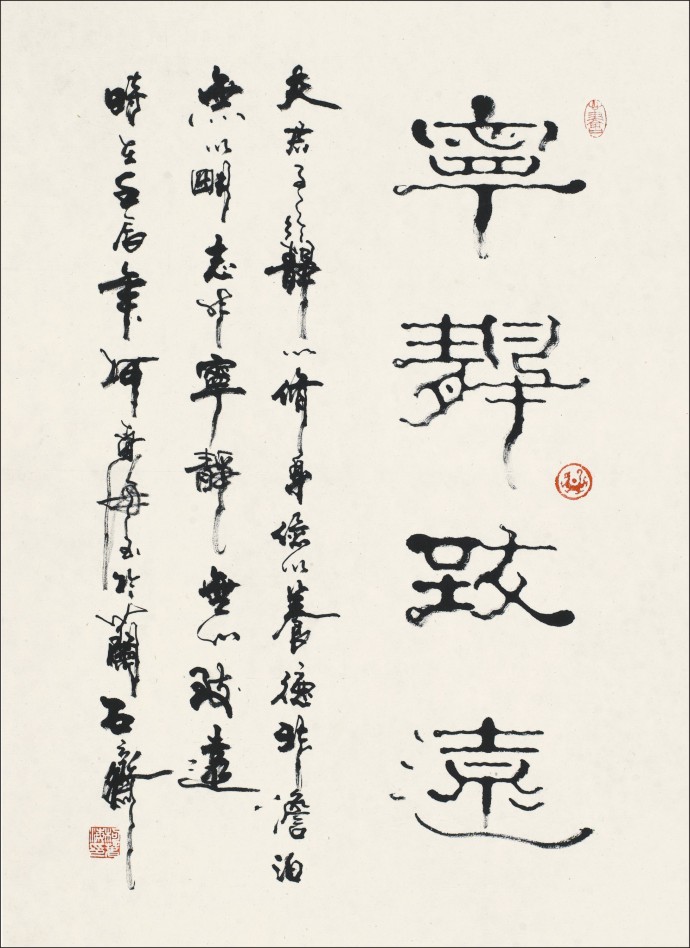 寧靜致遠
夫君子之行靜以脩身儉以養德非澹泊
無以明志非寧靜無以致遠
時在壬辰年柯書於蘭石齋